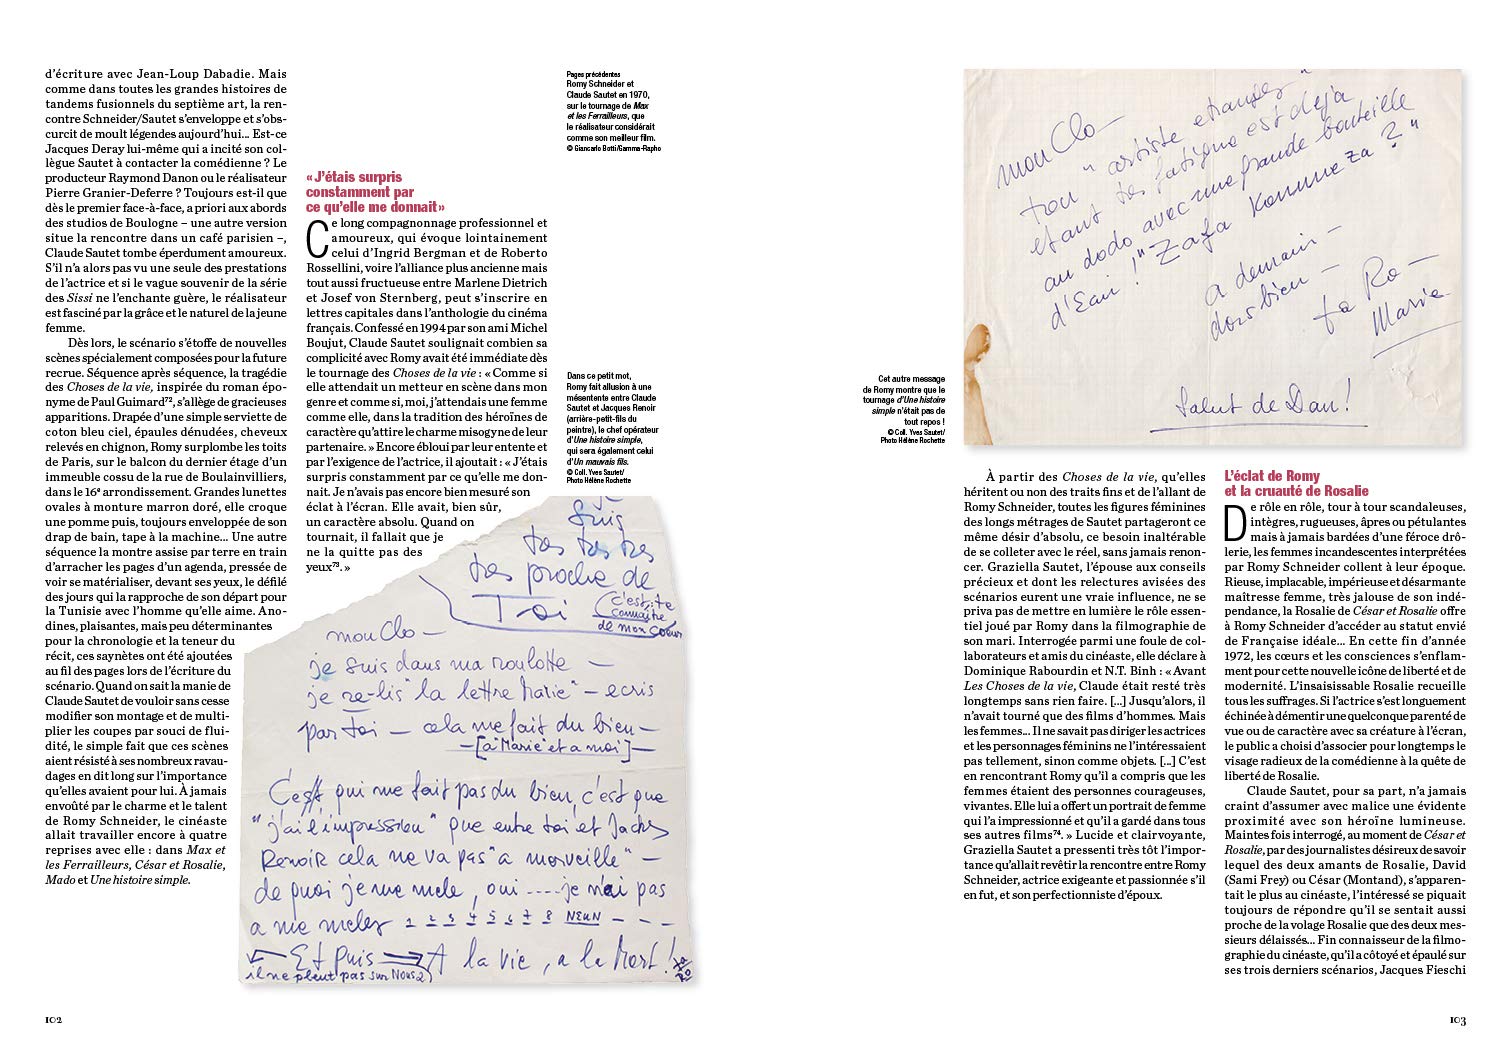 d'écriture avec Jean-Loup Dabadie. Mais
comme dans toutes les grandes histoires de
tandems fusionnels du septième art, la ren-
contre Schneider/Sautet s'enveloppe et s'obs-
curcit de moult légendes aujourd'hui... Est-ce
Jacques Deray lui-même qui a incité son col-
lègue Sautet à contacter la comédienne ? Le
producteur Raymond Danon ou le réalisateur
Pierre Granier-Deferre ? Toujours est-il que
dès le premier face-à-face, a priori aux abords
des studios de Boulogne – une autre version
situe la rencontre dans un café parisien –,
Claude Sautet tombe éperdument amoureux.
S'il n'a alors pas vu une seule des prestations
de l'actrice et si le vague souvenir de la série
des Sissi ne l'enchante guère, le réalisateur
est fasciné par la grâce et le naturel de la jeune
femme.
Dès lors, le scénario s'étoffe de nouvelles
scènes spécialement composées pour la future
recrue. Séquence après séquence, la tragédie
des Choses de la vie, inspirée du roman épo-
nyme de Paul Guimard72, s'allège de gracieuses
apparitions. Drapée d'une simple serviette de
coton bleu ciel, épaules dénudées, cheveux
relevés en chignon, Romy surplombe les toits
de Paris, sur le balcon du dernier étage d'un
immeuble cossu de la rue de Boulainvilliers,
dans le 16e arrondissement. Grandes lunettes
ovales à monture marron doré, elle croque
une pomme puis, toujours enveloppée de son
drap de bain, tape à la machine... Une autre
séquence la montre assise par terre en train
d'arracher les pages d'un agenda, pressée de
voir se matérialiser, devant ses yeux, le défilé
des jours qui la rapproche de son départ pour
la Tunisie avec l'homme qu'elle aime. Ano-
dines, plaisantes, mais peu déterminantes
pour la chronologie et la teneur du
récit, ces saynètes ont été ajoutées
au fil des pages lors de l'écriture du
scénario. Quand on sait la manie de
Claude Sautet de vouloir sans cesse
modifier son montage et de multi-
plier les coupes par souci de flui-
dité, le simple fait que ces scènes
aient résisté à ses nombreux ravau-
dages en dit long sur l'importance
qu'elles avaient pour lui. À jamais
envoûté par le charme et le talent
de Romy Schneider, le cinéaste
allait travailler encore à quatre
reprises avec elle : dans Max et
les Ferrailleurs, César et Rosalie,
Mado et Une histoire simple.
« J'étais surpris
constamment par
ce qu'elle me donnait »
Ce long compagnonnage professionnel et
amoureux, qui évoque lointainement
celui d'Ingrid Bergman et de Roberto
Rossellini, voire l'alliance plus ancienne mais
tout aussi fructueuse entre Marlene Dietrich
et Josef von Sternberg, peut s'inscrire en
lettres capitales dans l'anthologie du cinéma
français. Confessé en 1994 par son ami Michel
Boujut, Claude Sautet soulignait combien sa
complicité avec Romy avait été immédiate dès
le tournage des Choses de la vie : « Comme si
elle attendait un metteur en scène dans mon
genre et comme si, moi, j'attendais une femme
comme elle, dans la tradition des héroïnes de
caractère qu'attire le charme misogyne de leur
partenaire. » Encore ébloui par leur entente et
par l'exigence de l'actrice, il ajoutait : « J'étais
surpris constamment par ce qu'elle me don-
nait. Je n'avais pas encore bien mesuré son
éclat à l'écran. Elle avait, bien sûr,
un caractère absolu. Quand on
tournait, il fallait que je
ne la quitte pas des
yeux73. »
Pages précédentes
Romy Schneider et
Claude Sautet en 1970,
sur le tournage de Max
et les Ferrailleurs, que
le réalisateur considérait
comme son meilleur film.
© Giancarlo Botti/Gamma-Rapho
Dans ce petit mot,
Romy fait allusion à une
mésentente entre Claude
Sautet et Jacques Renoir
(arrière-petit-fils du
peintre), le chef opérateur
d'Une histoire simple,
qui sera également celui
d'Un mauvais fils.
© Coll. Yves Sautet/
Photo Hélène Rochette
suis
tres tres tres
tres proche de
Toi
(c'est, te
connaitre
de mon coeur
mon Clo –
je suis dans ma roulotte –
je re-lis "la lettre Marie" – ecris
par toi – cela me fait du bien –
– [a "Marie" et a moi] –
C'est qui me fait pas du bien, c'est que
"j'ai l'impression" que entre toi et Jacks
Renoir cela ne va pas "a merveille" –
de quoi je me mele, oui .... je n'ai pas
a me meler 1 2 3 4 5 6 7 8 NEUN – – –
Et Puis A la vie, a la Mort !
il ne pleut pas sur Nous 2)
102
mon Clo –
ton "artiste etranger"
etant tres fatiguee est deja
au dodo avec une grande bouteille
d'Eau ! "Zafa Kommeza ? "
a demain –
dors bien –
ta Ro –
Marie
Salut de Dan !
Cet autre message
de Romy montre que le
tournage d'Une histoire
simple n'était pas de
tout repos !
© Coll. Yves Sautet/
Photo Hélène Rochette
À partir des Choses de la vie, qu'elles
héritent ou non des traits fins et de l'allant de
Romy Schneider, toutes les figures féminines
des longs métrages de Sautet partageront ce
même désir d'absolu, ce besoin inaltérable
de se colleter avec le réel, sans jamais renon-
cer. Graziella Sautet, l'épouse aux conseils
précieux et dont les relectures avisées des
scénarios eurent une vraie influence, ne se
priva pas de mettre en lumière le rôle essen-
tiel joué par Romy dans la filmographie de
son mari. Interrogée parmi une foule de col-
laborateurs et amis du cinéaste, elle déclare à
Dominique Rabourdin et N.T. Binh : « Avant
Les Choses de la vie, Claude était resté très
longtemps sans rien faire. [...] Jusqu'alors, il
n'avait tourné que des films d'hommes. Mais
les femmes... Il ne savait pas diriger les actrices
et les personnages féminins ne l'intéressaient
pas tellement, sinon comme objets. [...] C'est
en rencontrant Romy qu'il a compris que les
femmes étaient des personnes courageuses,
vivantes. Elle lui a offert un portrait de femme
qui l'a impressionné et qu'il a gardé dans tous
ses autres films74. » Lucide et clairvoyante,
Graziella Sautet a pressenti très tôt l'impor-
tance qu'allait revêtir la rencontre entre Romy
Schneider, actrice exigeante et passionnée s'il
en fut, et son perfectionniste d'époux.
L'éclat de Romy
et la cruauté de Rosalie
De rôle en rôle, tour à tour scandaleuses,
intègres, rugueuses, âpres ou pétulantes
mais à jamais bardées d'une féroce drô-
lerie, les femmes incandescentes interprétées
par Romy Schneider collent à leur époque.
Rieuse, implacable, impérieuse et désarmante
maîtresse femme, très jalouse de son indé-
pendance, la Rosalie de César et Rosalie offre
à Romy Schneider d'accéder au statut envié
de Française idéale... En cette fin d'année
1972, les cœurs et les consciences s'enflam-
ment pour cette nouvelle icône de liberté et de
modernité. L'insaisissable Rosalie recueille
tous les suffrages. Si l'actrice s'est longuement
échinée à démentir une quelconque parenté de
vue ou de caractère avec sa créature à l'écran,
le public a choisi d'associer pour longtemps le
visage radieux de la comédienne à la quête de
liberté de Rosalie.
Claude Sautet, pour sa part, n'a jamais
craint d'assumer avec malice une évidente
proximité avec son héroïne lumineuse.
Maintes fois interrogé, au moment de César et
Rosalie, par des journalistes désireux de savoir
lequel des deux amants de Rosalie, David
(Sami Frey) ou César (Montand), s'apparen-
tait le plus au cinéaste, l'intéressé se piquait
toujours de répondre qu'il se sentait aussi
proche de la volage Rosalie que des deux mes-
sieurs délaissés... Fin connaisseur de la filmo-
graphie du cinéaste, qu'il a côtoyé et épaulé sur
ses trois derniers scénarios, Jacques Fieschi
103